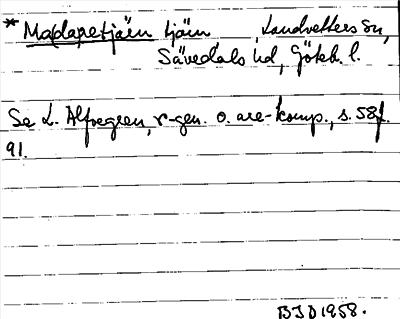 * Madaretjärn tjärn Landvetters sn,
Sävedals hd, Göteb. l.
Se L. Alfvegren, r-gen. o. are-komp., s. 58f.
91.
BJD 1958.